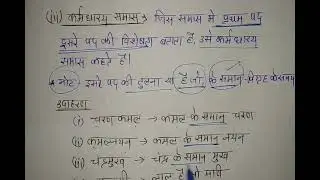 (iii) कर्मधारय समास :- जिस समास में प्रथम पद
दूसरे पद की विशेषता बताता है, उसे कर्मधारय
समास कहते हैं।
नोट:- इसमें पद की तुलना या है जो, के समान
उदाहरण
(i) चरण कमल → कमल के समान चरण
(ii) कमलनयन → कमल के समान नयन
(iii) चंद्रमुख → चंद्र के समान मुख